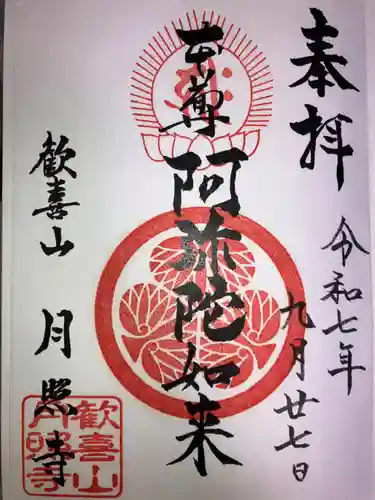 奉拝
令和七年
九月廿七日
本尊
阿弥陀如来
歓喜山 月照寺
歓喜山
月照寺